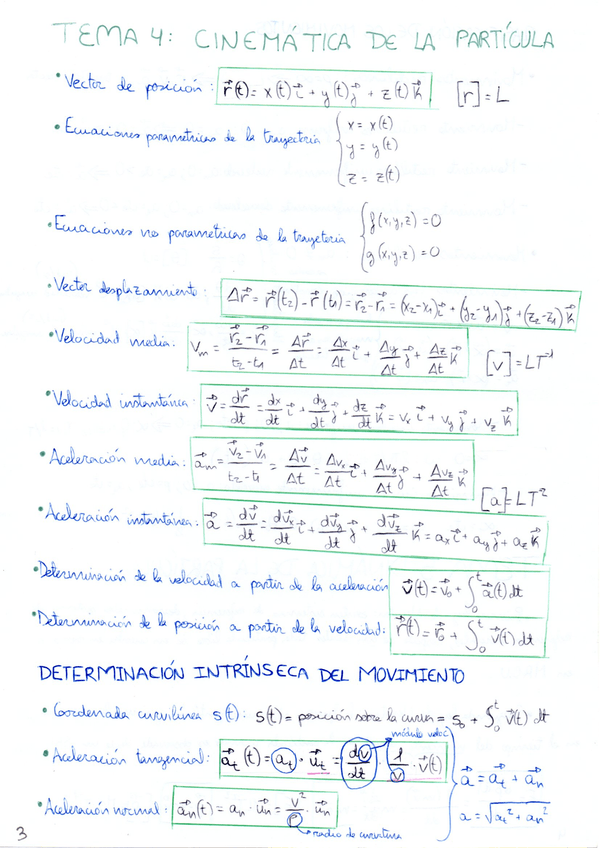 TEMA 4: CINEMÁTICA DE LA PARTÍCULA
• Vector de posición: r⃗(t) = x(t) i⃗ + y(t) j⃗ + z(t) k⃗ [r] = L
• Ecuaciones paramétricas de la trayectoria { x = x(t)
y = y(t)
z = z(t)
• Ecuaciones no paramétricas de la trayetoria { f(x,y,z) = 0
g(x,y,z) = 0
• Vector desplazamiento: Δr⃗ = r⃗(t₂) - r⃗(t₁) = r⃗₂ - r⃗₁ = (x₂-x₁) i⃗ + (y₂-y₁) j⃗ + (z₂-z₁) k⃗
• Velocidad media: Vₘ = (r⃗₂ - r⃗₁)/(t₂ - t₁) = Δr⃗/Δt = Δx/Δt i⃗ + Δy/Δt j⃗ + Δz/Δt k⃗ [v] = LT⁻¹
• Velocidad instantánea: v⃗ = dr⃗/dt = dx/dt i⃗ + dy/dt j⃗ + dz/dt k⃗ = vₓ i⃗ + v_y j⃗ + v_z k⃗
• Aceleración media: a⃗ₘ = (v⃗₂ - v⃗₁)/(t₂ - t₁) = Δv⃗/Δt = Δvₓ/Δt i⃗ + Δv_y/Δt j⃗ + Δv_z/Δt k⃗ [a] = LT⁻²
• Aceleración instantánea: a⃗ = dv⃗/dt = dv⃗ₓ/dt i⃗ + dv⃗_y/dt j⃗ + dv⃗_z/dt k⃗ = aₓ i⃗ + a_y j⃗ + a_z k⃗
• Determinación de la velocidad a partir de la aceleración v⃗(t) = v⃗₀ + ∫₀ᵗ a⃗(t) dt
• Determinación de la posición a partir de la velocidad: r⃗(t) = r⃗₀ + ∫₀ᵗ v⃗(t) dt
DETERMINACIÓN INTRÍNSECA DEL MOVIMIENTO
• Coordenada curvilínea s(t): s(t) = posición sobre la curva = s₀ + ∫₀ᵗ v⃗(t) dt
módulo veloc.
• Aceleración tangencial: a⃗ₜ(t) = aₜ · u⃗ₜ = dv/dt · 1/v · v⃗(t) a⃗ = a⃗ₜ + a⃗ₙ
• Aceleración normal: a⃗ₙ(t) = aₙ · u⃗ₙ = v²/ρ · u⃗ₙ a = √(aₜ² + aₙ²)
radio de curvatura
3